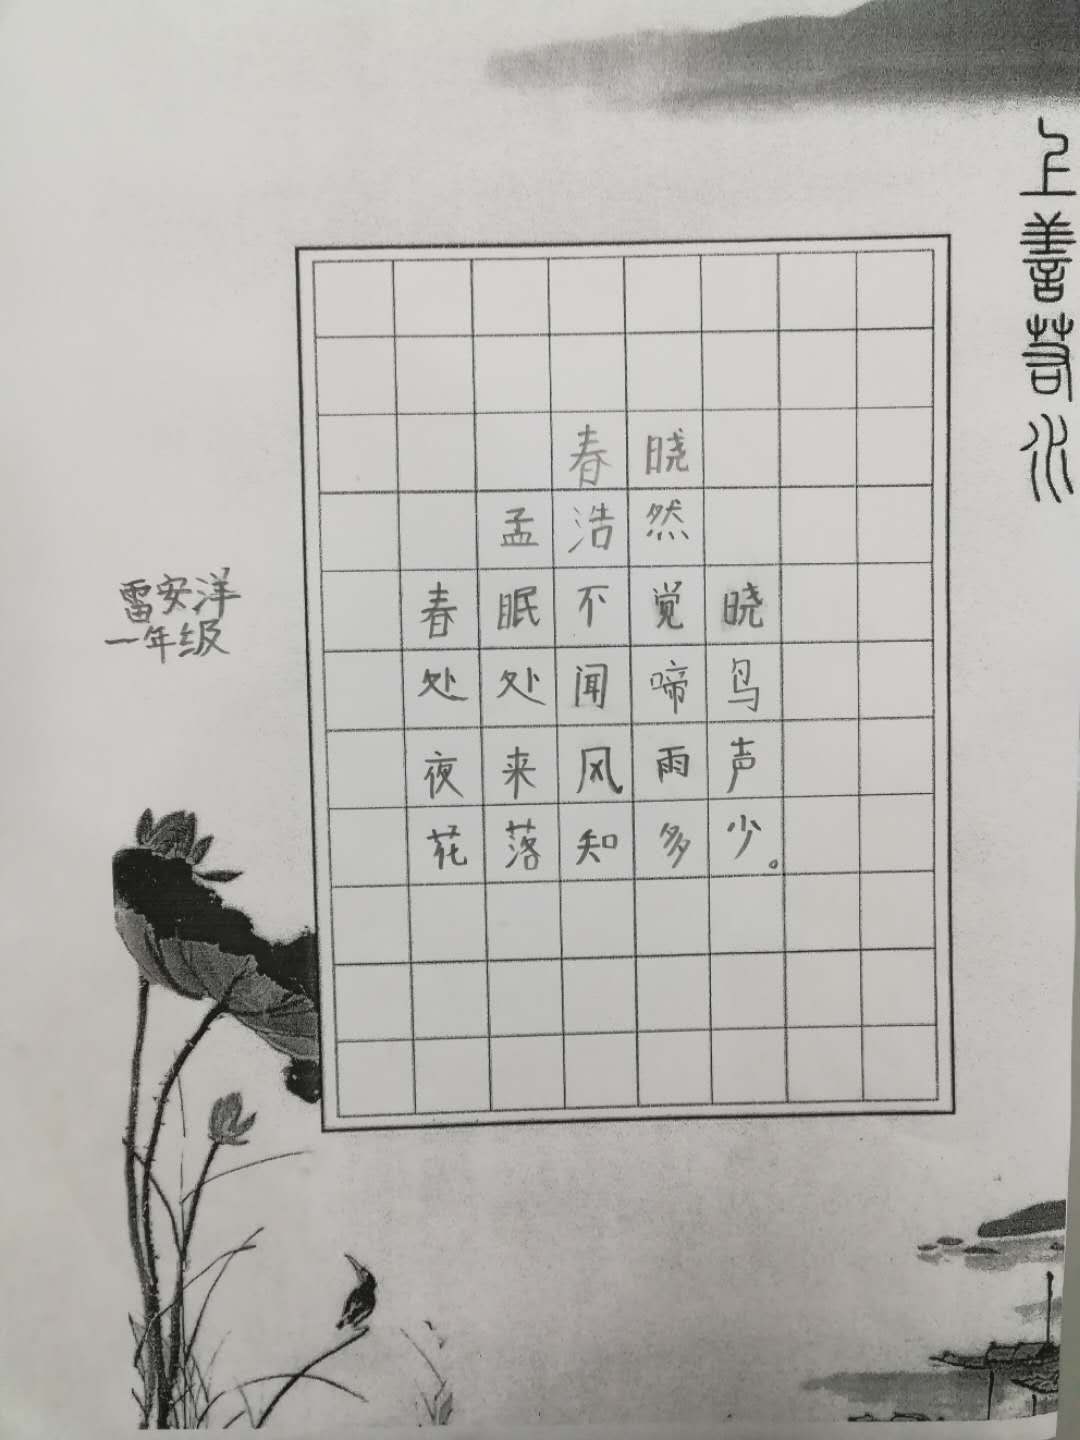 上善若水
春晓
孟浩然
春眠不觉晓
处处闻啼鸟
夜来风雨声
花落知多少。
雷安洋
一年级